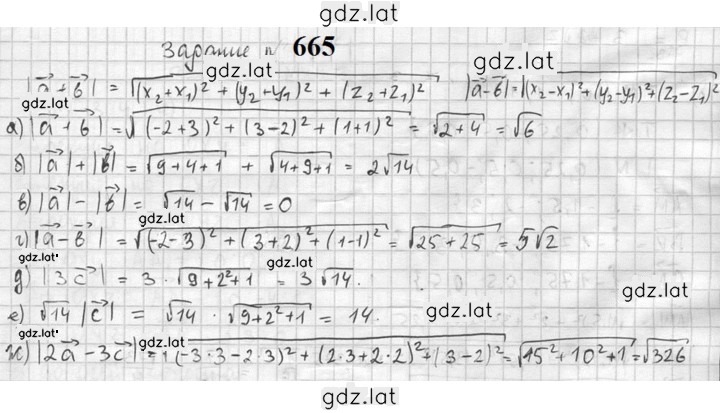 gdz.lat
Задание n 665
gdz.lat
|a⃗+b⃗| = √((x₂+x₁)² + (y₂+y₁)² + (z₂+z₁)²) |a⃗-b⃗| = √((x₂-x₁)²+(y₂-y₁)²+(z₂-z₁)²)
gdz.lat gdz.lat gdz.lat
а) |a⃗+b⃗| = √((-2+3)² + (3-2)² + (1+1)²) = √(2+4) = √6
б) |a⃗| + |b⃗| = √(9+4+1) + √(4+9+1) = 2√14
в) |a⃗| - |b⃗| = √14 - √14 = 0
gdz.lat
г) |a⃗-b⃗| = √((-2-3)² + (3+2)² + (1-1)²) = √(25+25) = 5√2
gdz.lat gdz.lat
д) |3c⃗| = 3 · √(9+2²+1) = 3√14.
gdz.lat
е) √14 |c⃗| = √14 · √(9+2²+1) = 14.
gdz.lat gdz.lat gdz.lat
ж) |2a⃗-3c⃗| = √((-3·3-2·3)² + (2·3+2·2)² + (3-2)²) = √(15²+10²+1) = √326
gdz.lat